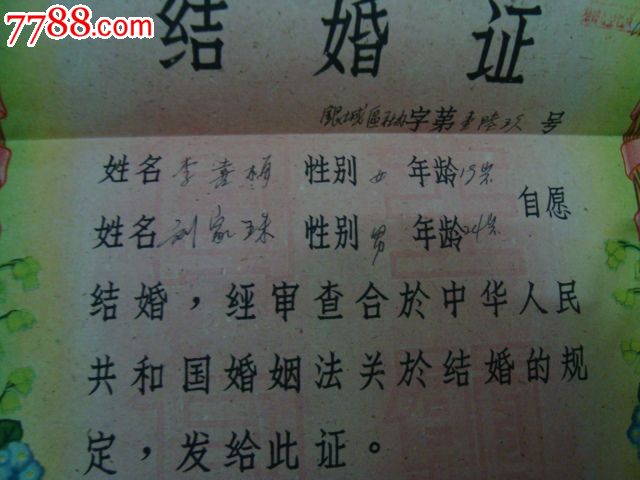 7788.com
结婚证
银城区社办字第壹陆玖号
姓名李喜梅 性别女 年龄19岁
自愿
姓名刘家珠 性别男 年龄24岁
结婚，经审查合於中华人民
共和国婚姻法关於结婚的规
定，发给此证。